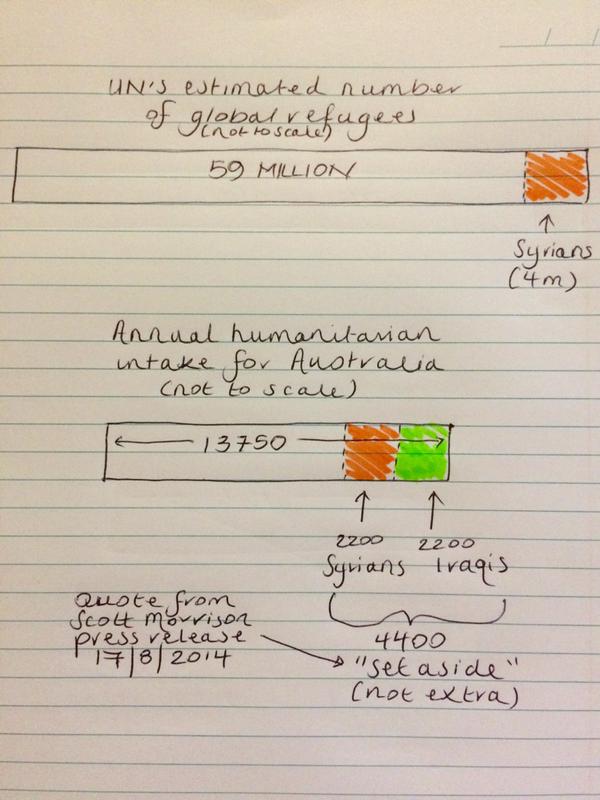 UN's estimated number
of global refugees
(not to scale)
59 MILLION
Syrians
(4m)
Annual humanitarian
intake for Australia
(not to scale)
13750
2200 2200
Syrians Iraqis
Quote from
Scott Morrison
press release
17/8/2014
4400
"set aside"
(not extra)